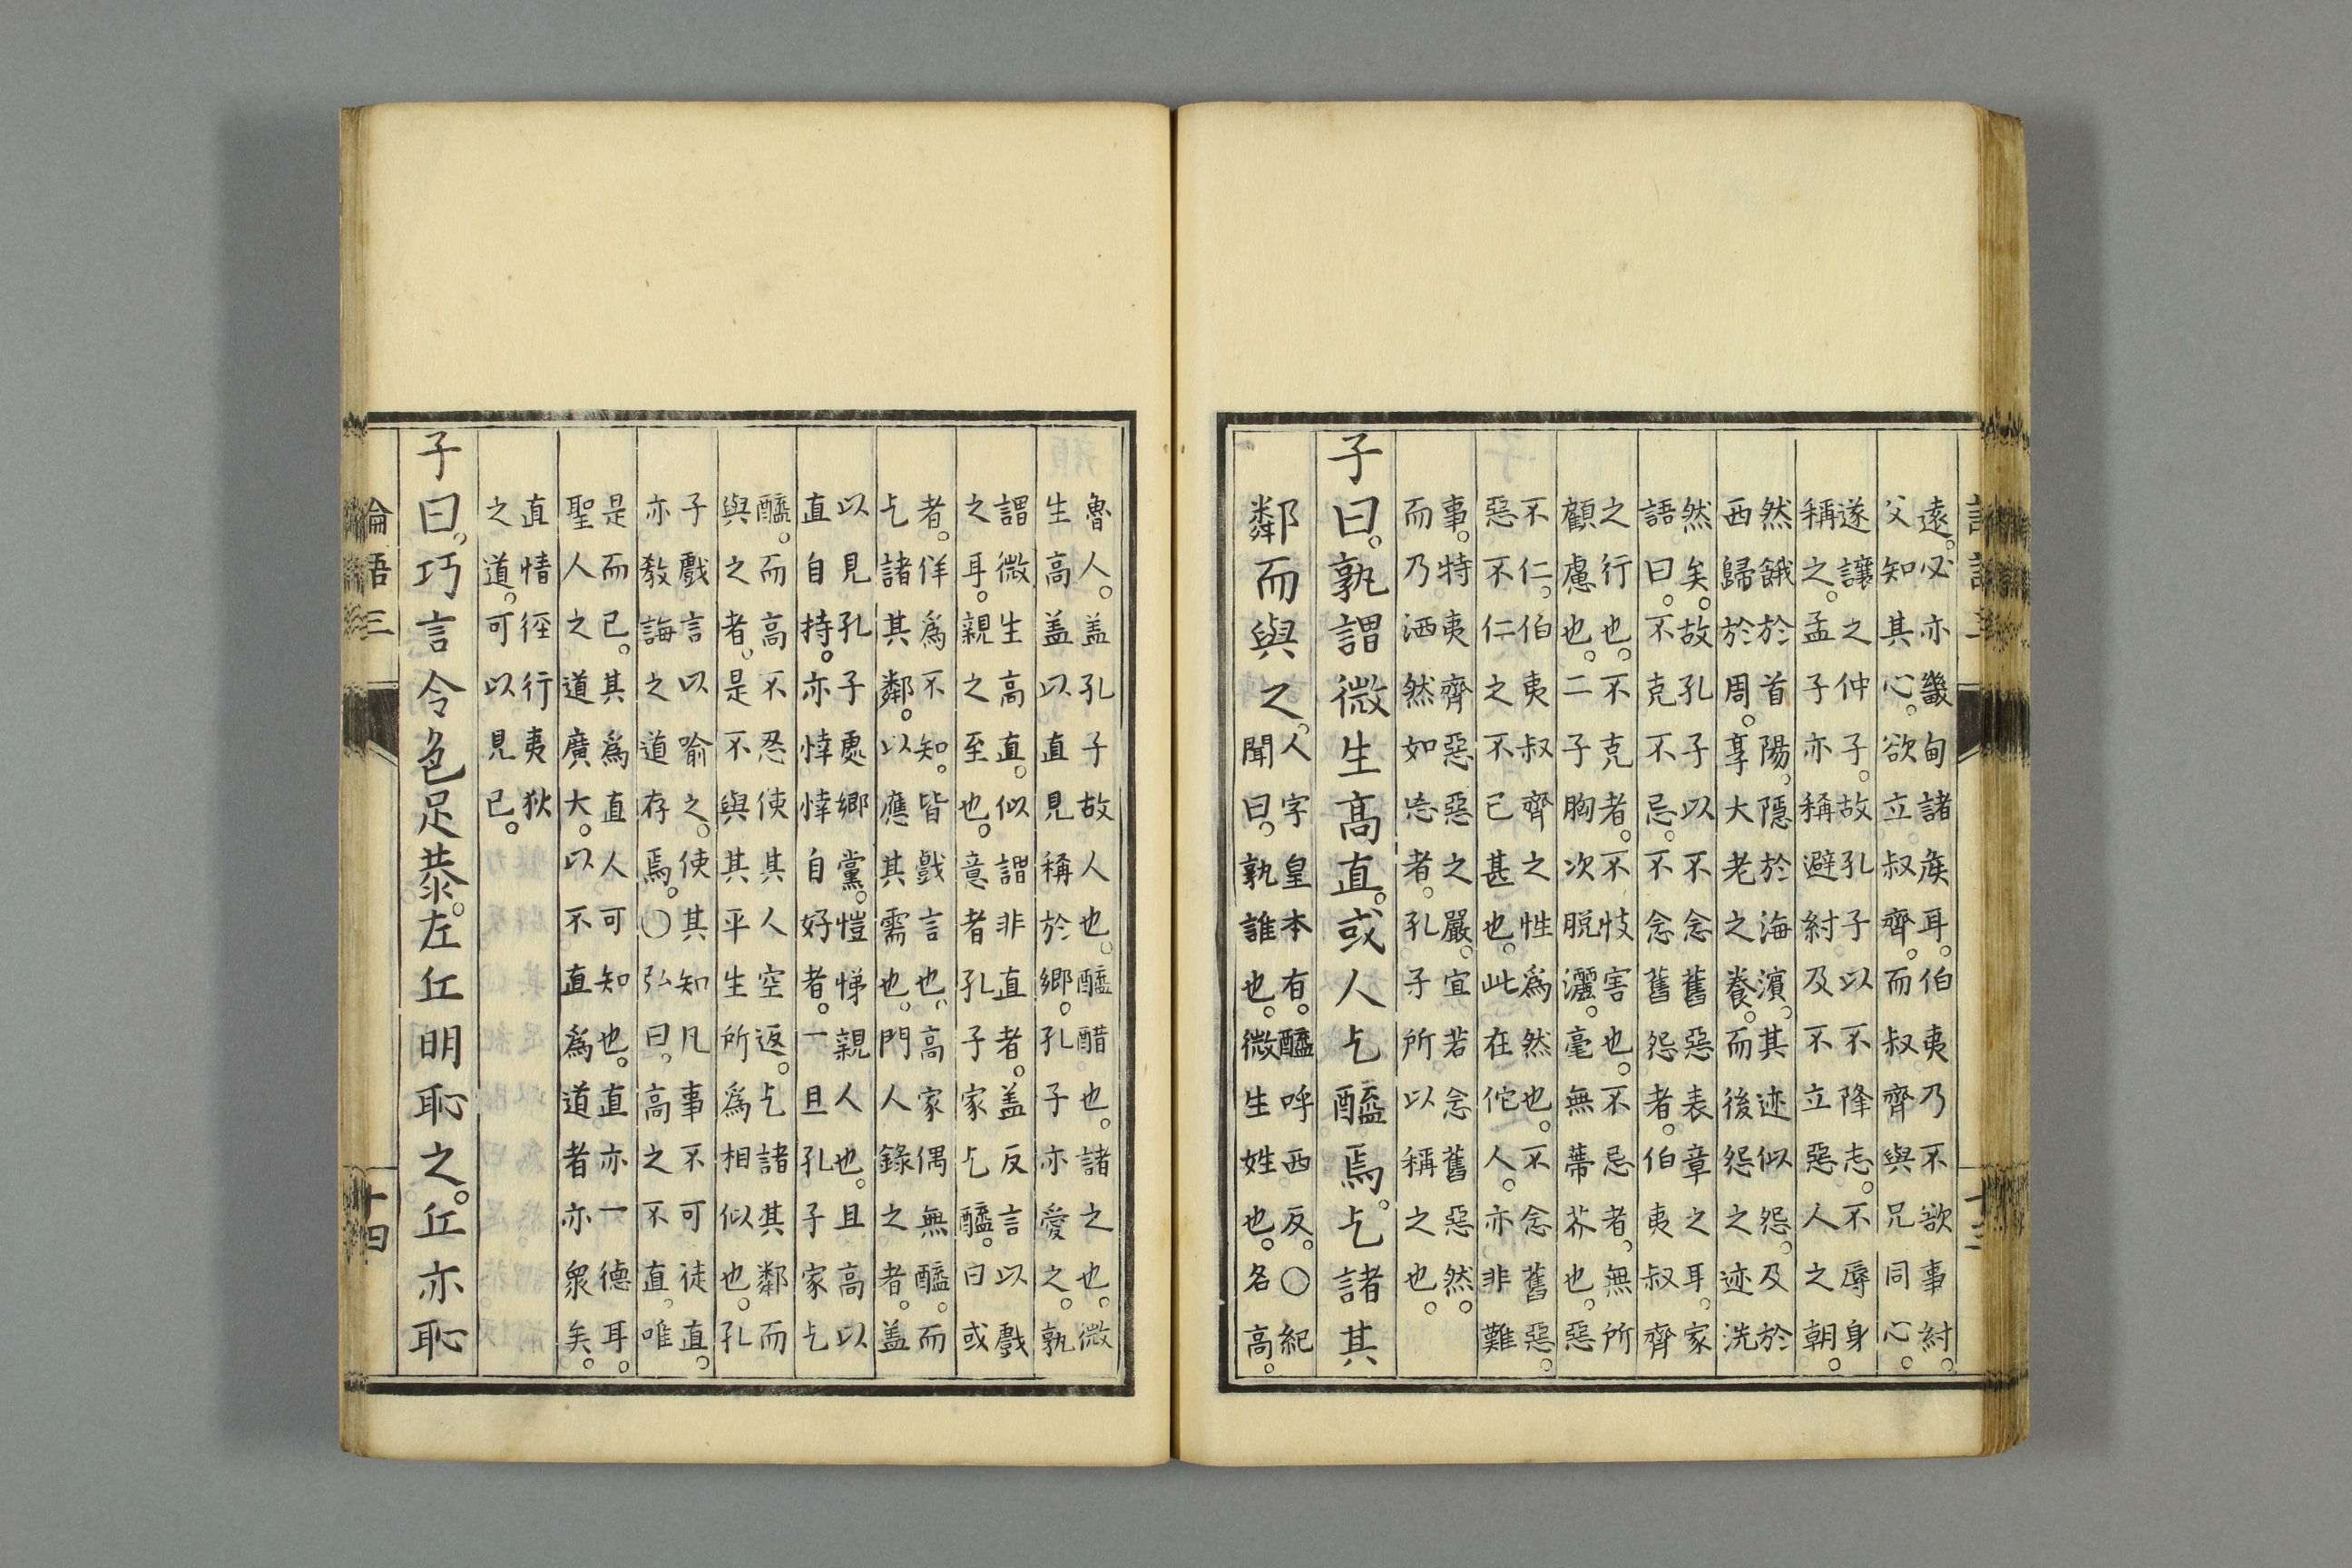 遠。必亦畿甸諸侯耳。伯夷乃不欲事紂。
父知其心。欲立叔齊。而叔齊與兄同心。
遂讓之仲子。故孔子以不降志。不辱身
稱之。孟子亦稱避紂及不立惡人之朝。
然餓於首陽。隱於海濱。其迹似怨。及於
西歸於周。享大老之養。而後怨之迹洗
然矣。故孔子以不念舊惡表章之耳。家
語曰。不克不忌。不念舊怨者。伯夷叔齊
之行也。不克者。不忮害也。不忌者。無所
顧慮也。二子胸次脱灑。毫無蔕芥也。惡
不仁。伯夷叔齊之性爲然也。不念舊惡。
惡不仁之不已甚也。此在佗人。亦非難
事。特夷齊惡惡之嚴。宜若念舊惡然。
而乃洒然如忘者。孔子所以稱之也。
子曰。孰謂微生高直。或人乞醯焉。乞諸其
鄰而與之。
人字皇本有。醯呼西反。〇紀
聞曰。孰誰也。微生姓也。名高。
魯人。盖孔子故人也。醯醋也。諸之也。微
生高盖以直見稱於鄉。孔子亦愛之。孰
謂微生高直。似謂非直者。盖反言以戲
之耳。親之至也。意者孔子家乞醯。曰或
者。佯爲不知。皆戲言也。高家偶無醯。而
乞諸其鄰。以應其需也。門人錄之者。盖
以見孔子處鄉黨。愷悌親人也。且高以
直自持。亦悻悻自好者。一旦孔子家乞
醯。而高不忍使其人空返。乞諸其鄰而
與之者。是不與其平生所爲相似也。孔
子戲言以喻之。使其知凡事不可徒直。
亦敎誨之道存焉。〇弘曰。高之不直。唯
是而已。其爲直人可知也。直亦一德耳。
聖人之道廣大。以不直爲道者亦衆矣。
直情徑行夷狄
之道。可以見已。
子曰。巧言令色足恭。左丘明恥之。丘亦恥
論語三
十四